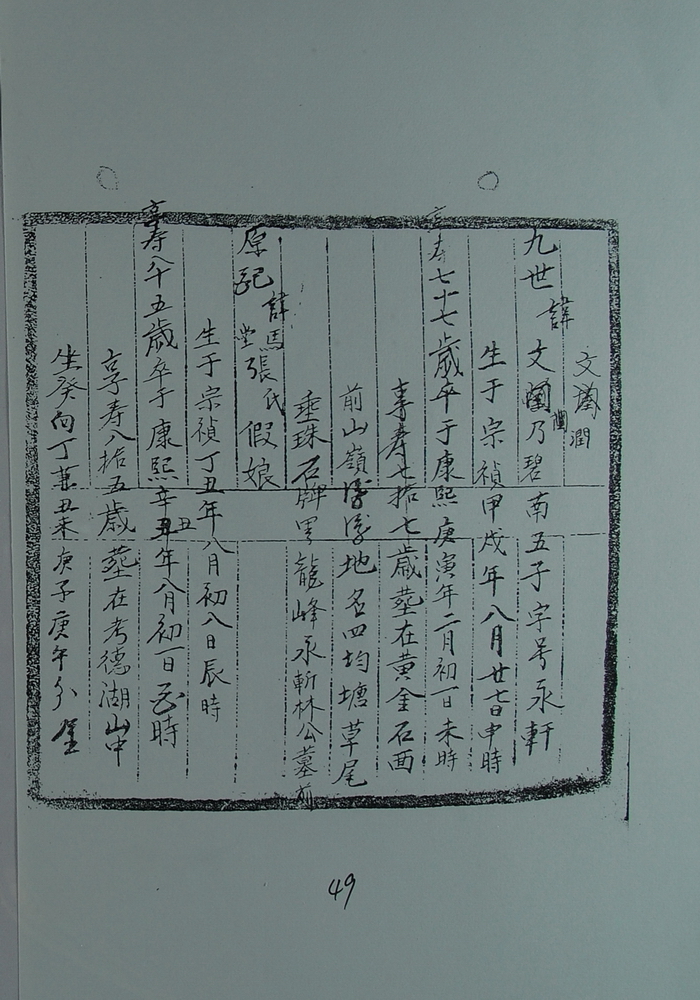 文 潤
九世 諱 文 乃碧南五子字号永軒
生于宗禎甲戌年八月廿七日申時
享寿七十七歳卒于康熙庚寅年二月初一日未時
享寿七拾七歳塟在黄金石西
前山嶺 地名四均塘草尾
垂珠石牌 龍峰永斬林公墓前
原配 諱馬 堂 張氏假娘
生于宗禎丁丑年八月初八日辰時
享寿八十五歳卒于康熙辛丑丑年八月初一日 時
享寿八拾五歳塟在考德湖山中
坐癸向丁兼丑未庚子庚午分金
49